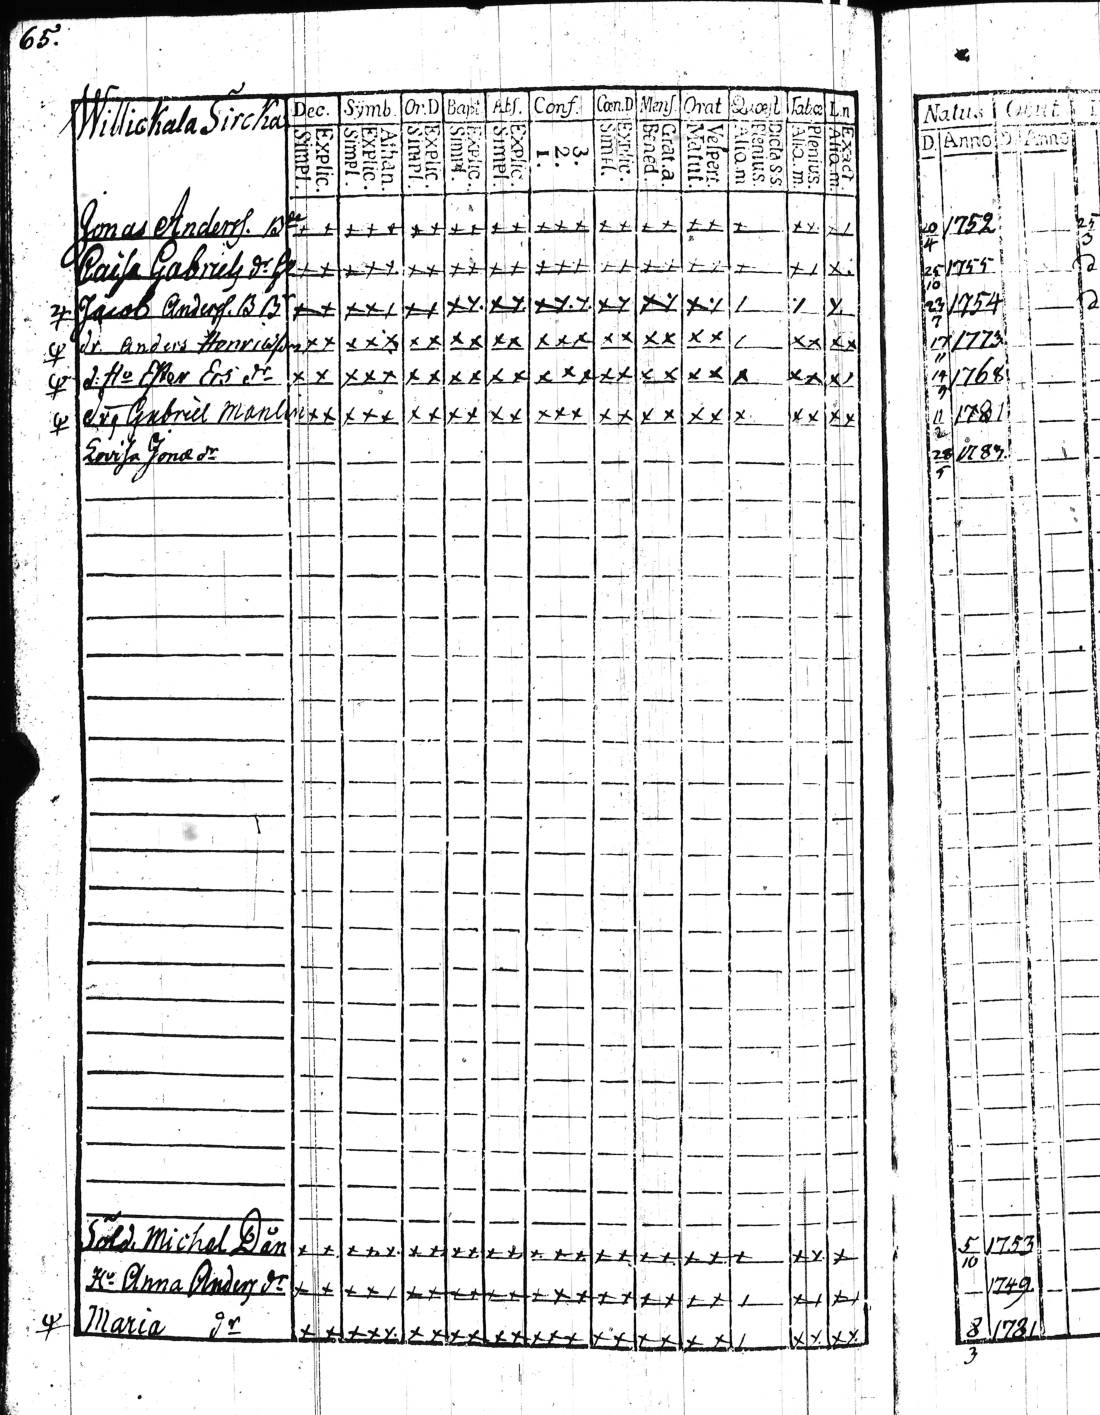 65.
Willickala Sircka
Dec. Symb. Or.D Bapt Abs. Conf. Cœn.D Mens. Orat Quæst Tabæ Ln
Explic. Simpl. Athan. Explic. Simpl. Explic. Simpl. Explic. Simpl. Explic. Simpl. 3. 2. 1. Explic. Simpl. Grat.a Bened. Vespert. Matut. Dicta s.s Plenius. Aliq.m Plenius. Aliq.m Exact. Aliq.m
Natus Obiit
D. Anno D. Anno
Jonas Anders. Bde x x x x x x x x x x x x x x x x x x x x x x 20/4 1752 25/3
Caisa Gabriels dr 25/10 1755
Jacob Anders. B Br 23/7 1754
dr. Anders Henricss 17/11 1773
d. Hu Ester Ers dr 14/9 1768
drg Gabriel Manlin 11/2 1781
Lovisa Jonæ dr 28/5 1787
Sold. Michel Dån 5/10 1753
Hu Anna Anders dr 1749
Maria dr 8/3 1781